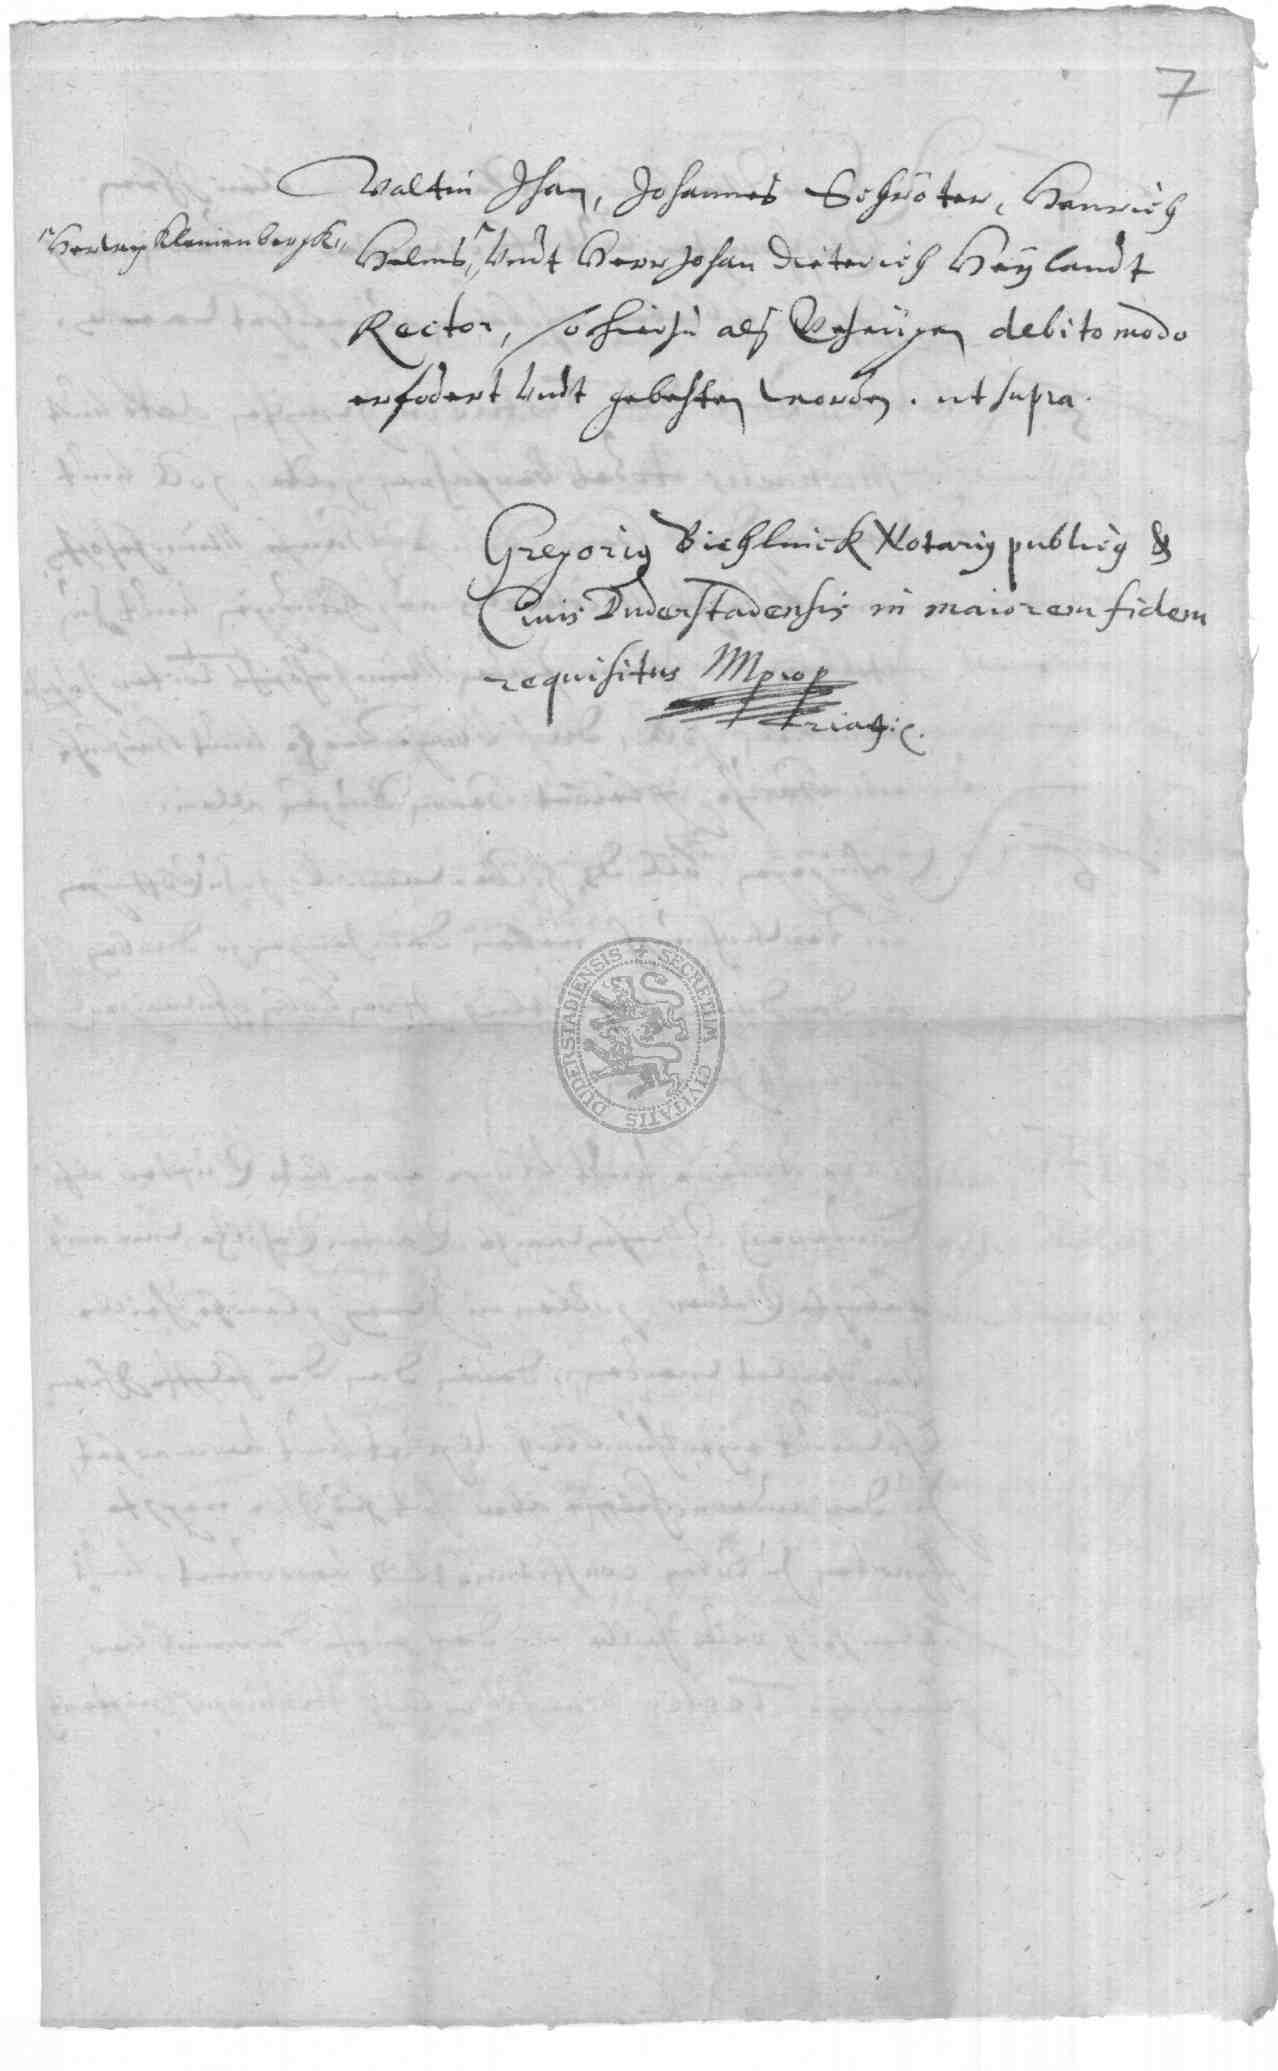 7
Valtin Ihan, Johannes Schröter, Henrich
Hertwig Klemenbergk,
Helms, Undt Herr Johan Dieterich Heylandt
Rector, so hierzu alß Gezeugen debito modo
erfodert Undt gebehten worden. ut supra.
Gregorius Biehlnick Notarius publicus &
Civis Duderstadensis in maiorem fidem
requisitus Mprop
riass.
SECRETUM CIVITATIS DUDERSTADIENSIS